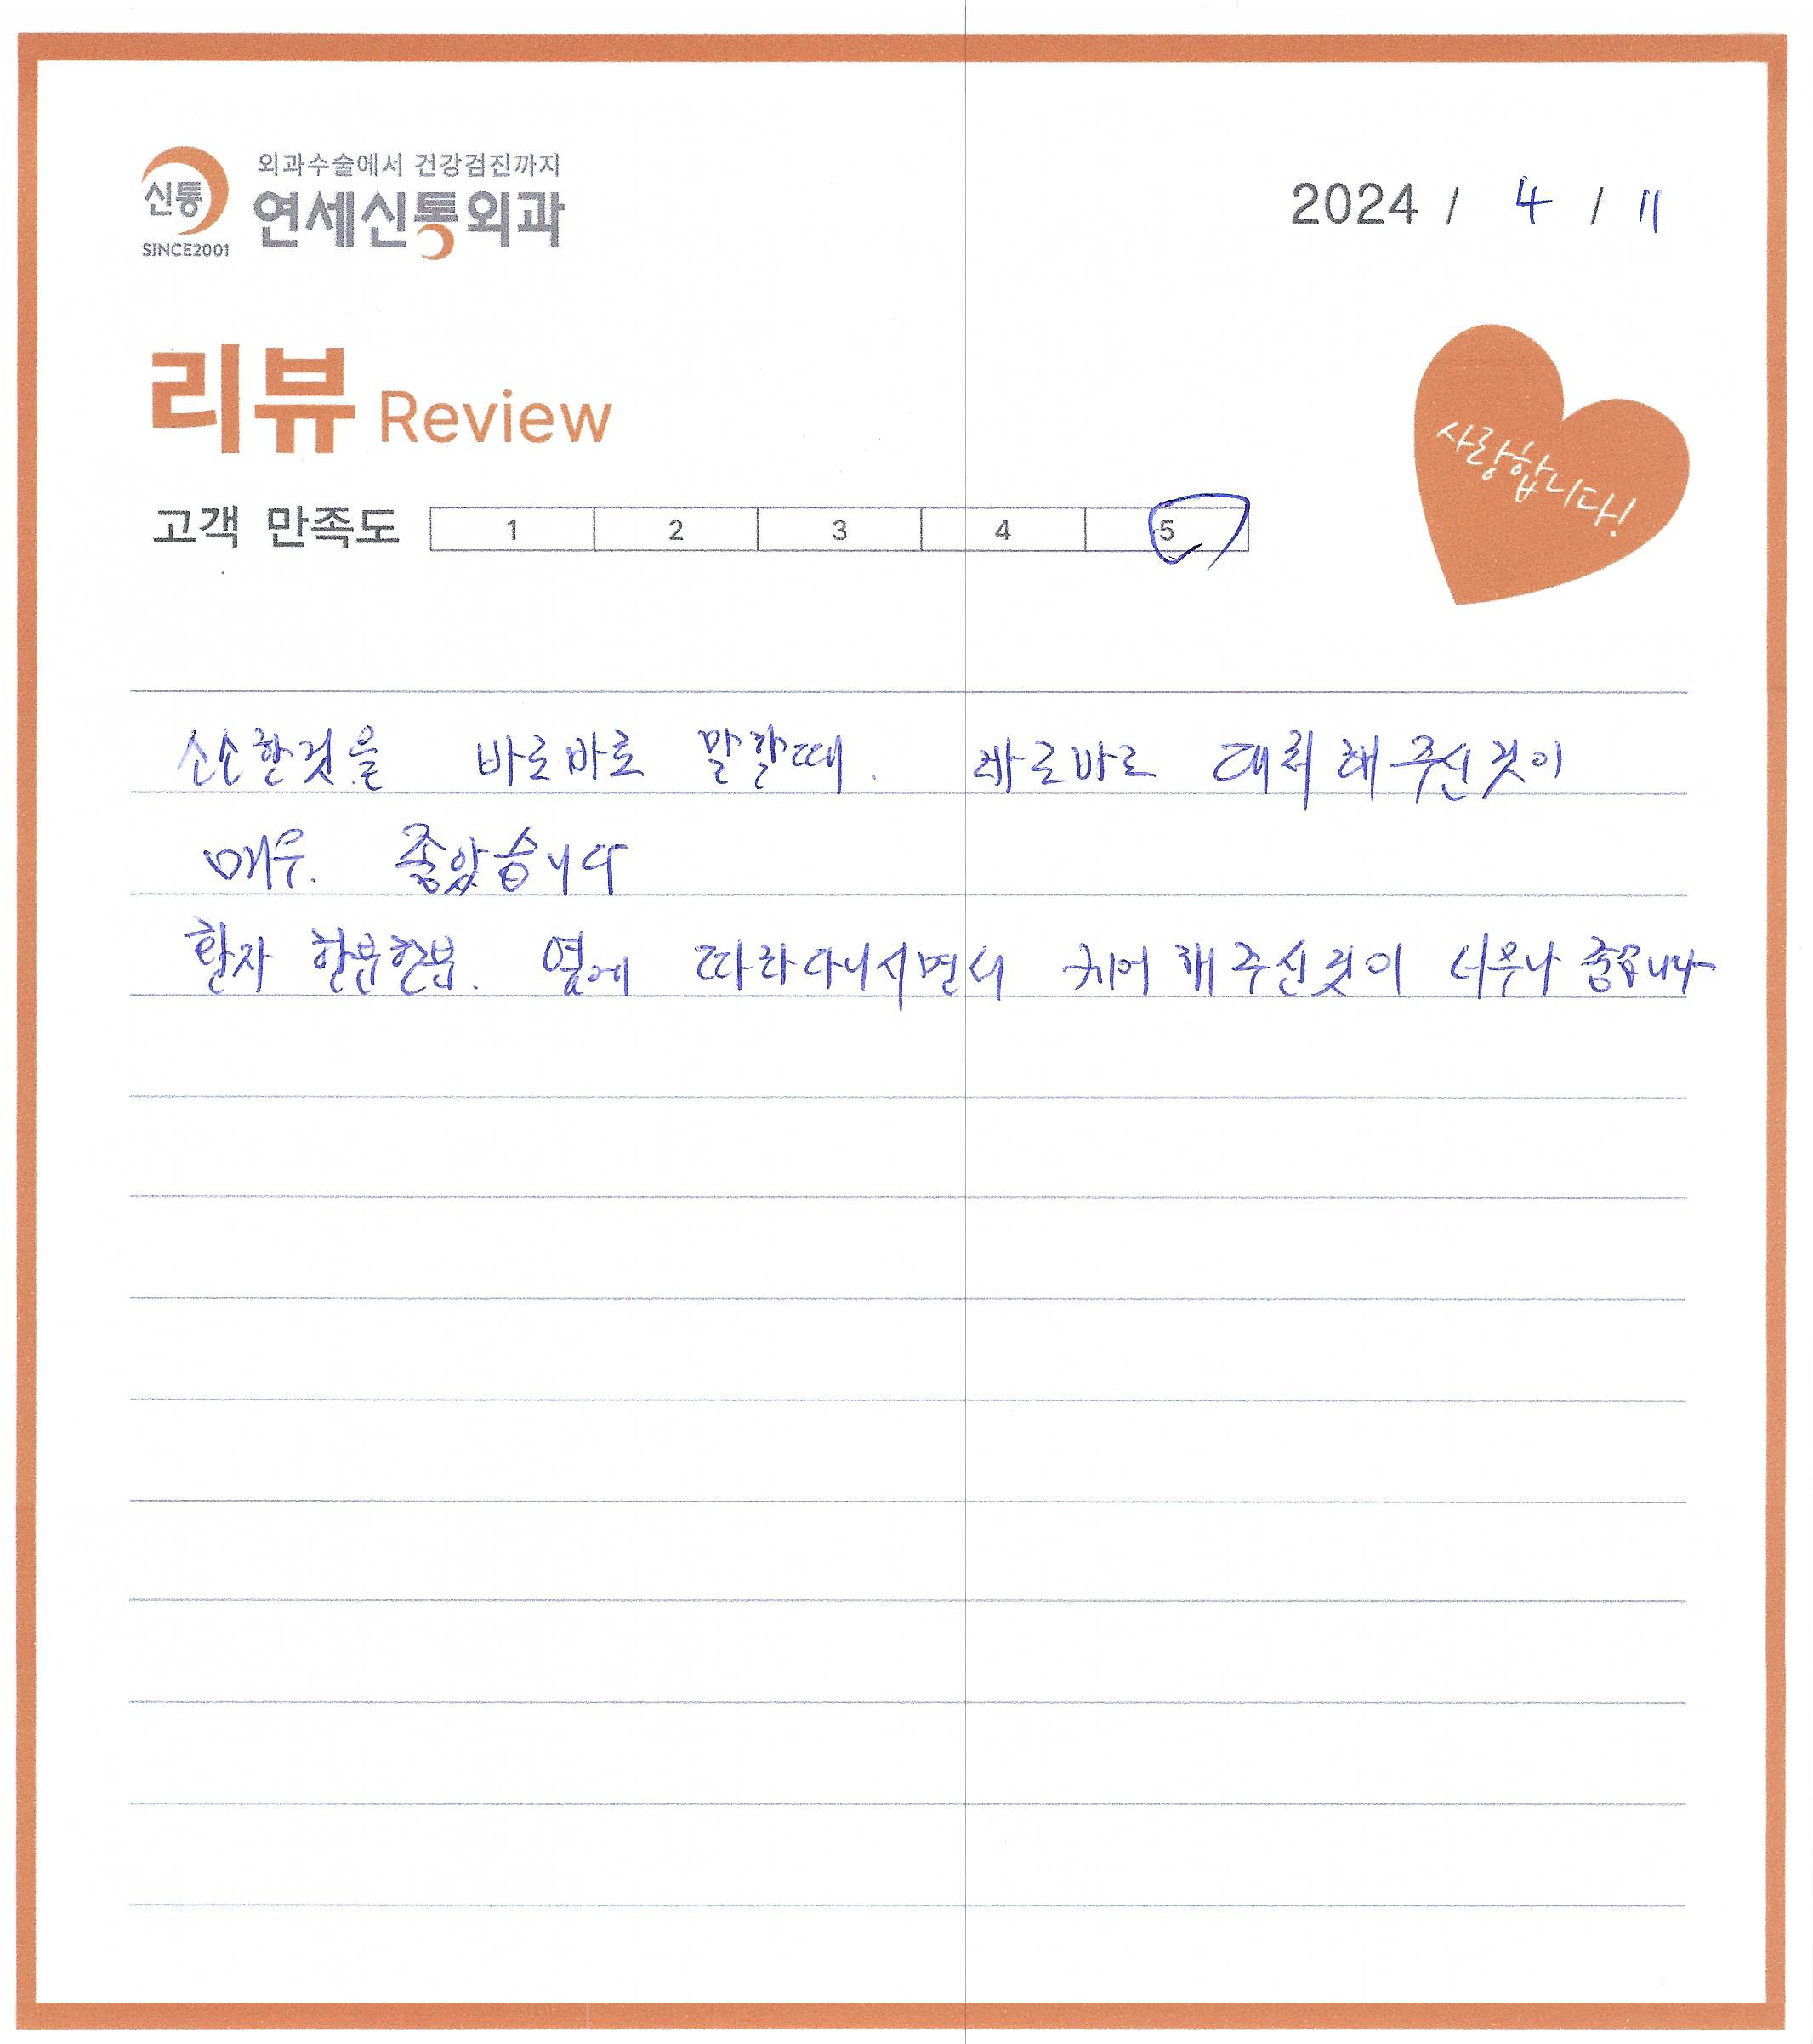 외과수술에서 건강검진까지
신통
연세신통외과
SINCE2001
2024 / 4 / 11
리뷰 Review
사랑합니다!
고객 만족도 1 2 3 4 5
소소한것을 바로바로 말할때. 바로바로 대처해주신것이
매우. 좋았습니다
환자 한분한분. 옆에 따라다니시면서 케어해주신것이 너무나 좋습니다